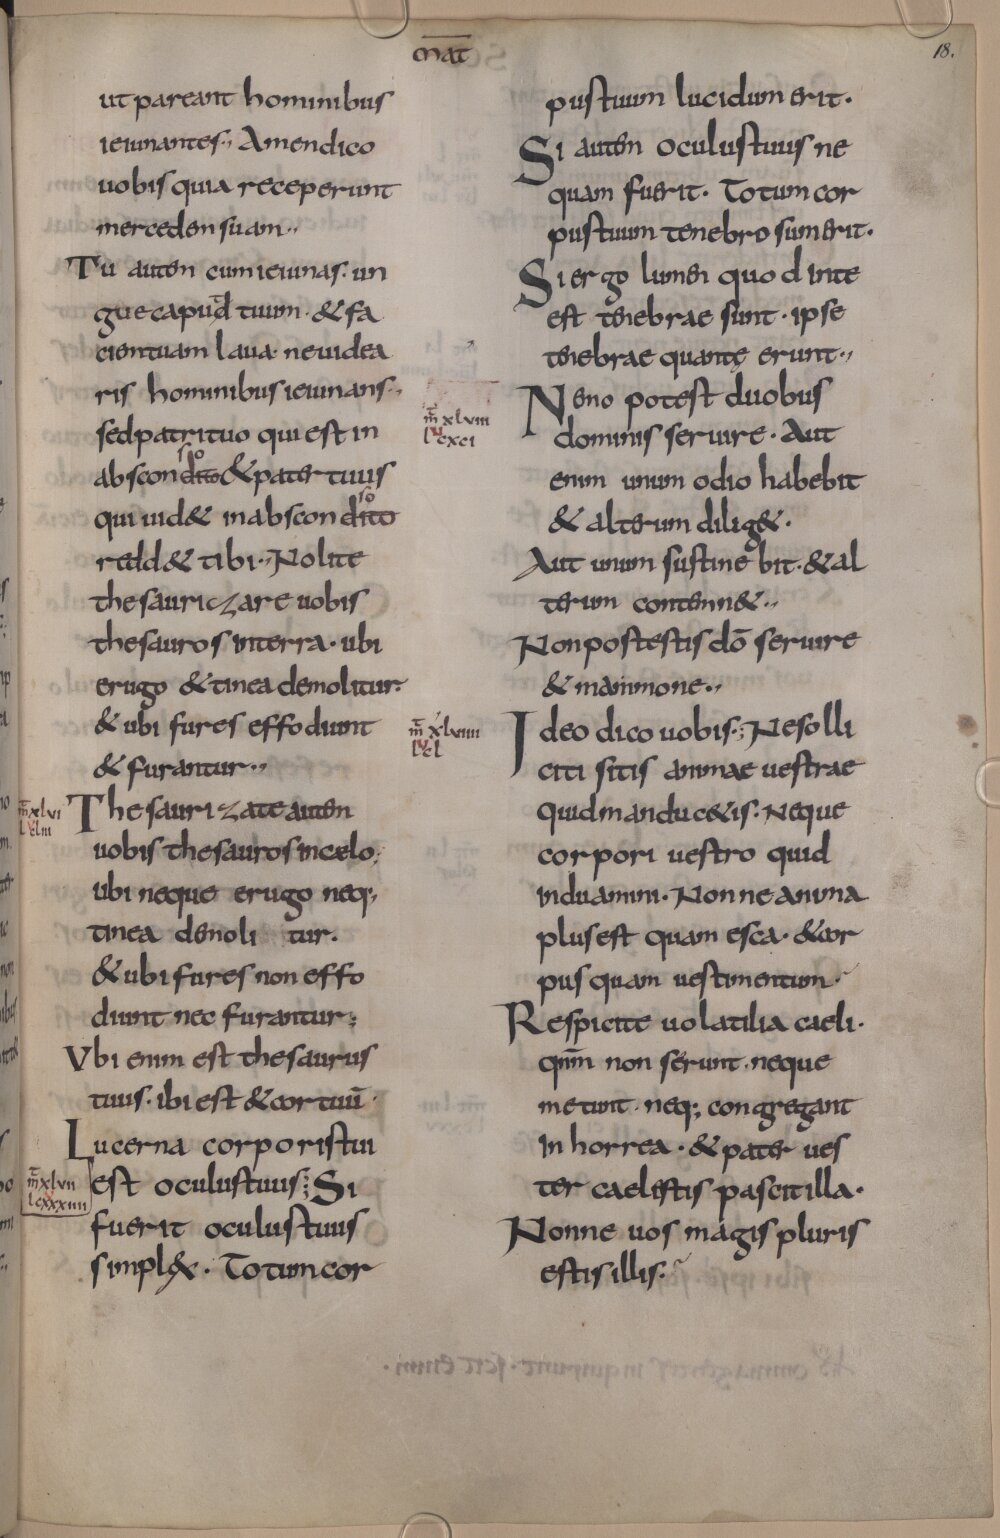 mat
18.
ut pareant hominibus
ieiunantes. Amendico
uobis quia receperunt
mercedem suam.
Tu autem cum ieiunas. un
gue caput tuum. & fa
ciem tuam laua. ne uidea
ris hominibus ieiunans.
sed patri tuo qui est in
absconso & pater tuus
qui uid& in absconso
redd& tibi. Nolite
thesaurizare uobis
thesauros interra. ubi
erugo & tinea demolitur.
& ubi fures effodiunt
& furantur.
m̄ xlvi
l v clii
Thesaurizate autem
uobis thesauros incælo.
ubi neque erugo neq;
tinea demolitur.
& ubi fures non effo
diunt nec furantur;
Vbi enim est thesaurus
tuus. ibi est & cor tuū.
Lucerna corporis tui
m̄ xlvii
l v cxxxiiii
est oculus tuus; Si
fuerit oculus tuus
simpl&x. Totum cor
pus tuum lucidum erit.
Si autem oculus tuus ne
quam fuerit. Totum cor
pus tuum tenebrosum erit.
Si ergo lumen quod inte
est tenebrae sunt. ipse
tenebrae quantę erunt.
m̄ xlviii
l v cxci
Nemo potest duobus
dominis seruire. Aut
enim unum odio habebit
& alterum dilig&.
Aut unum sustinebit. & al
terum contemn&.
Non postestis dō seruire
& mammone.
m̄ xlviiii
l v cl
Ideo dico uobis; Ne solli
citi sitis animae uestrae
Quid manduc&is. Neque
corpori uestro quid
induamini. Nonne anima
plus est quam esca. & cor
pus quam uestimentum.
Respicite uolatilia caeli.
qnm̄ non serunt. neque
metunt. neq; congregant
In horrea. & pater ues
ter caelestis pascit illa.
Nonne uos magis pluris
estis illis.